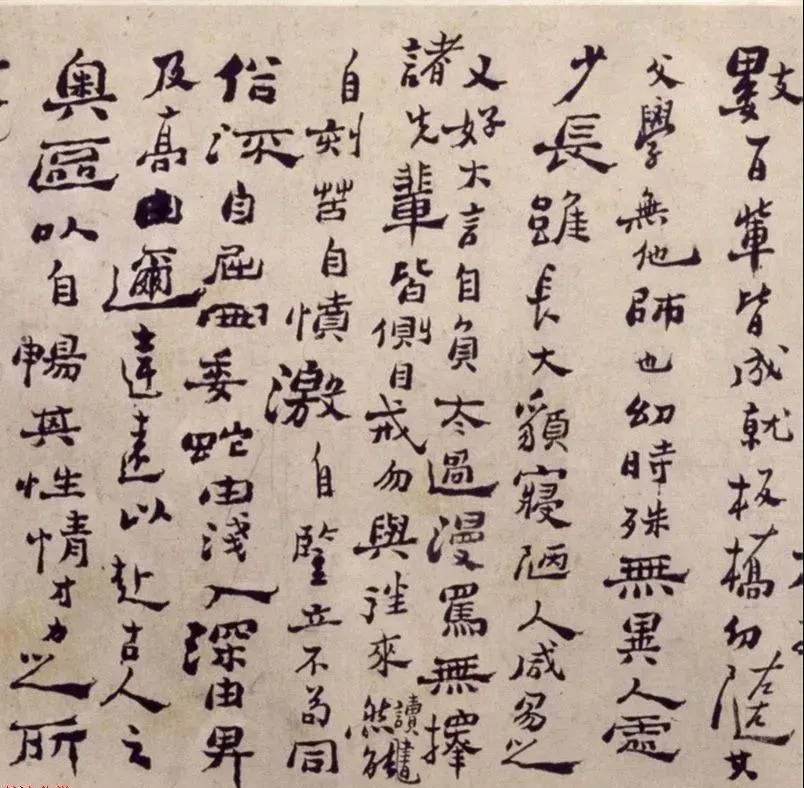 數百輩皆成就板橋幼隨其
父學無他師也幼時殊無異人處
少長雖長大貌寢陋人咸易之
又好大言自負太過漫罵無擇
諸先輩皆側目戒勿與往來然讀書能
自刻苦自憤激自豎立不苟同
俗深自屈曲委蛇由淺入深由卑
及高由邇達遠以赴古人之
奧區以自暢其性情才力之所